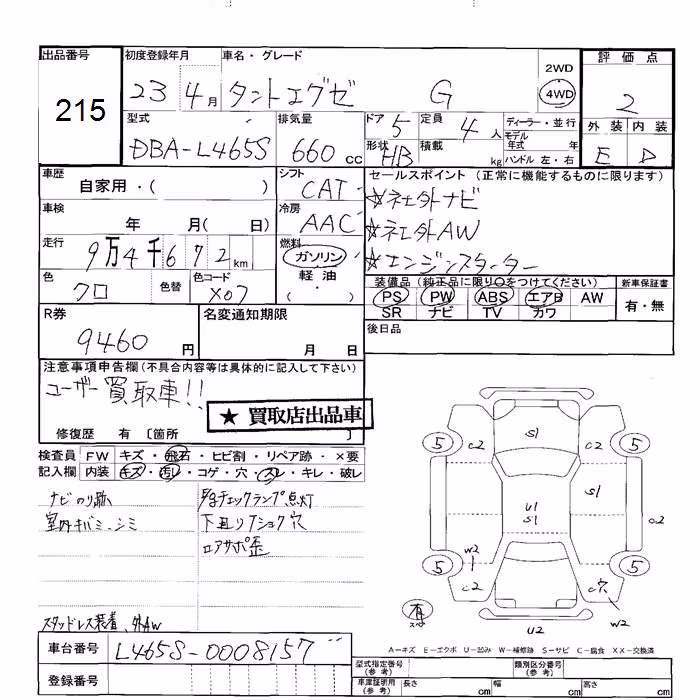 出品番号
215
初度登録年月
23 4月
車名・グレード
タントエグゼ G
2WD
4WD
評価点
2
型式
DBA-L465S
排気量
660cc
ドア 5
形状 HB
定員 4人
積載 kg
ディーラー・並行
モデル年式 年
ハンドル 左・右
外装 内装
E D
車歴
自家用・( )
シフト
CAT
セールスポイント (正常に機能するものに限ります)
☆社外ナビ
☆社外AW
☆エンジンスターター
車検
年 月( 日)
冷房
AAC
走行
9万4千672km
燃料
ガソリン
軽油
( ・ )
色
クロ
色替
色コード
X07
装備品 (純正品に限り○をつけてください)
PS PW ABS エアB AW
SR ナビ TV カワ
新車保証書
有・無
R券
9460円
名変通知期限
月 日
後日品
注意事項申告欄(不具合内容等は具体的に記入して下さい)
ユーザー買取車!!
★ 買取店出品車
修復歴 有 〔箇所 〕
検査員記入欄
FW キズ・飛石・ヒビ割・リペア跡・×要
内装 キズ・汚レ・コゲ・穴・スレ・キレ・破レ
ナビのり跡
室内キバミ、シミ
チェックランプ点灯
穴
エアサポ歪
スタッドレス装着、外AW
車台番号
L465S-0008157
登録番号
5 C2 S1 C2 5
S1
U1
S1
C2
W2
5 C2 C穴 5
W2
有
U2
A-キズ E-エクボ U-凹み W-補修跡 S-サビ C-腐食 XX-交換済
型式指定番号(参考)
類別区分番号(参考)
車庫証明用(参考) 長さ cm 幅 cm 高さ cm